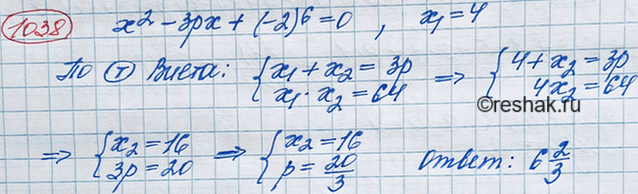 1038 x² - 3px + (-2)⁶ = 0 , x₁ = 4
По Т Виета: { x₁ + x₂ = 3p x₁ · x₂ = 64 ⇒ { 4 + x₂ = 3p 4x₂ = 64
©reshak.ru
⇒ { x₂ = 16 3p = 20 ⇒ { x₂ = 16 p = 20/3 Ответ: 6 2/3